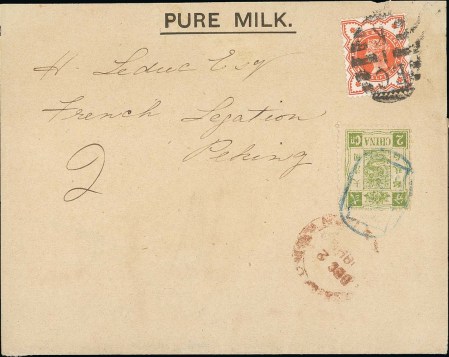 PURE MILK.
H. Leduc Esq
French Legation
Peking
2
CHINA
2
DEC 2